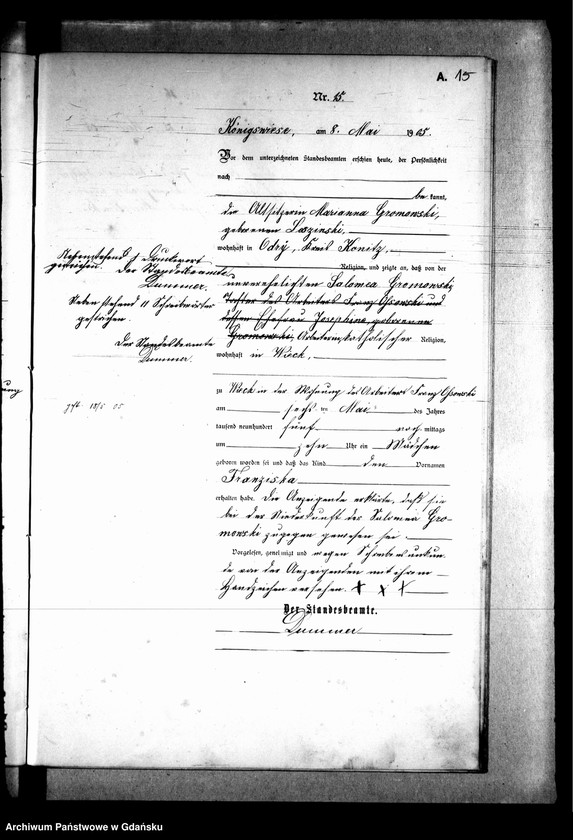 A. 15
Nr. 15.
Königswiese, am 8. Mai 1905.
Vor dem unterzeichneten Standesbeamten erschien heute, der Persönlichkeit
nach
be kannt,
die Altsitzerin Marianna Gromowski,
geborenen
wohnhaft in Odry, Kreis Konitz,
Religion, und zeigte an, daß von der
unverehelichten Salomea Gromowski,
Tochter des Arbeiters Franz Ossowski und
dessen Ehefrau Josephine, geborenen
Gromowski, Arbeiterin, katholischer Religion,
wohnhaft in Wieck,
zu Wieck in der Wohnung des Arbeiters Franz Ossowski
am sechs ten Mai des Jahres
tausend neunhundert fünf nach mittags
um zehn Uhr ein Mädchen
geboren worden sei und daß das Kind den Vornamen
Franziska
erhalten habe. Die Anzeigende erklärte, daß sie
bei der Niederkunft der Salomea Gro-
mowski zugegen gewesen sei.
Vorgelesen, genehmigt und wegen Schreibensunkun-
de von der Anzeigenden mit ihrem
Handzeichen versehen. X X X
Der Standesbeamte.
Dummer
Nebenstehend 1 Druckwort
gestrichen. Der Standesbeamte
Dummer.
Neben stehend 11 Schreibwörter
gestrichen.
Der Standesbeamte
Dummer.
Archiwum Państwowe w Gdańsku